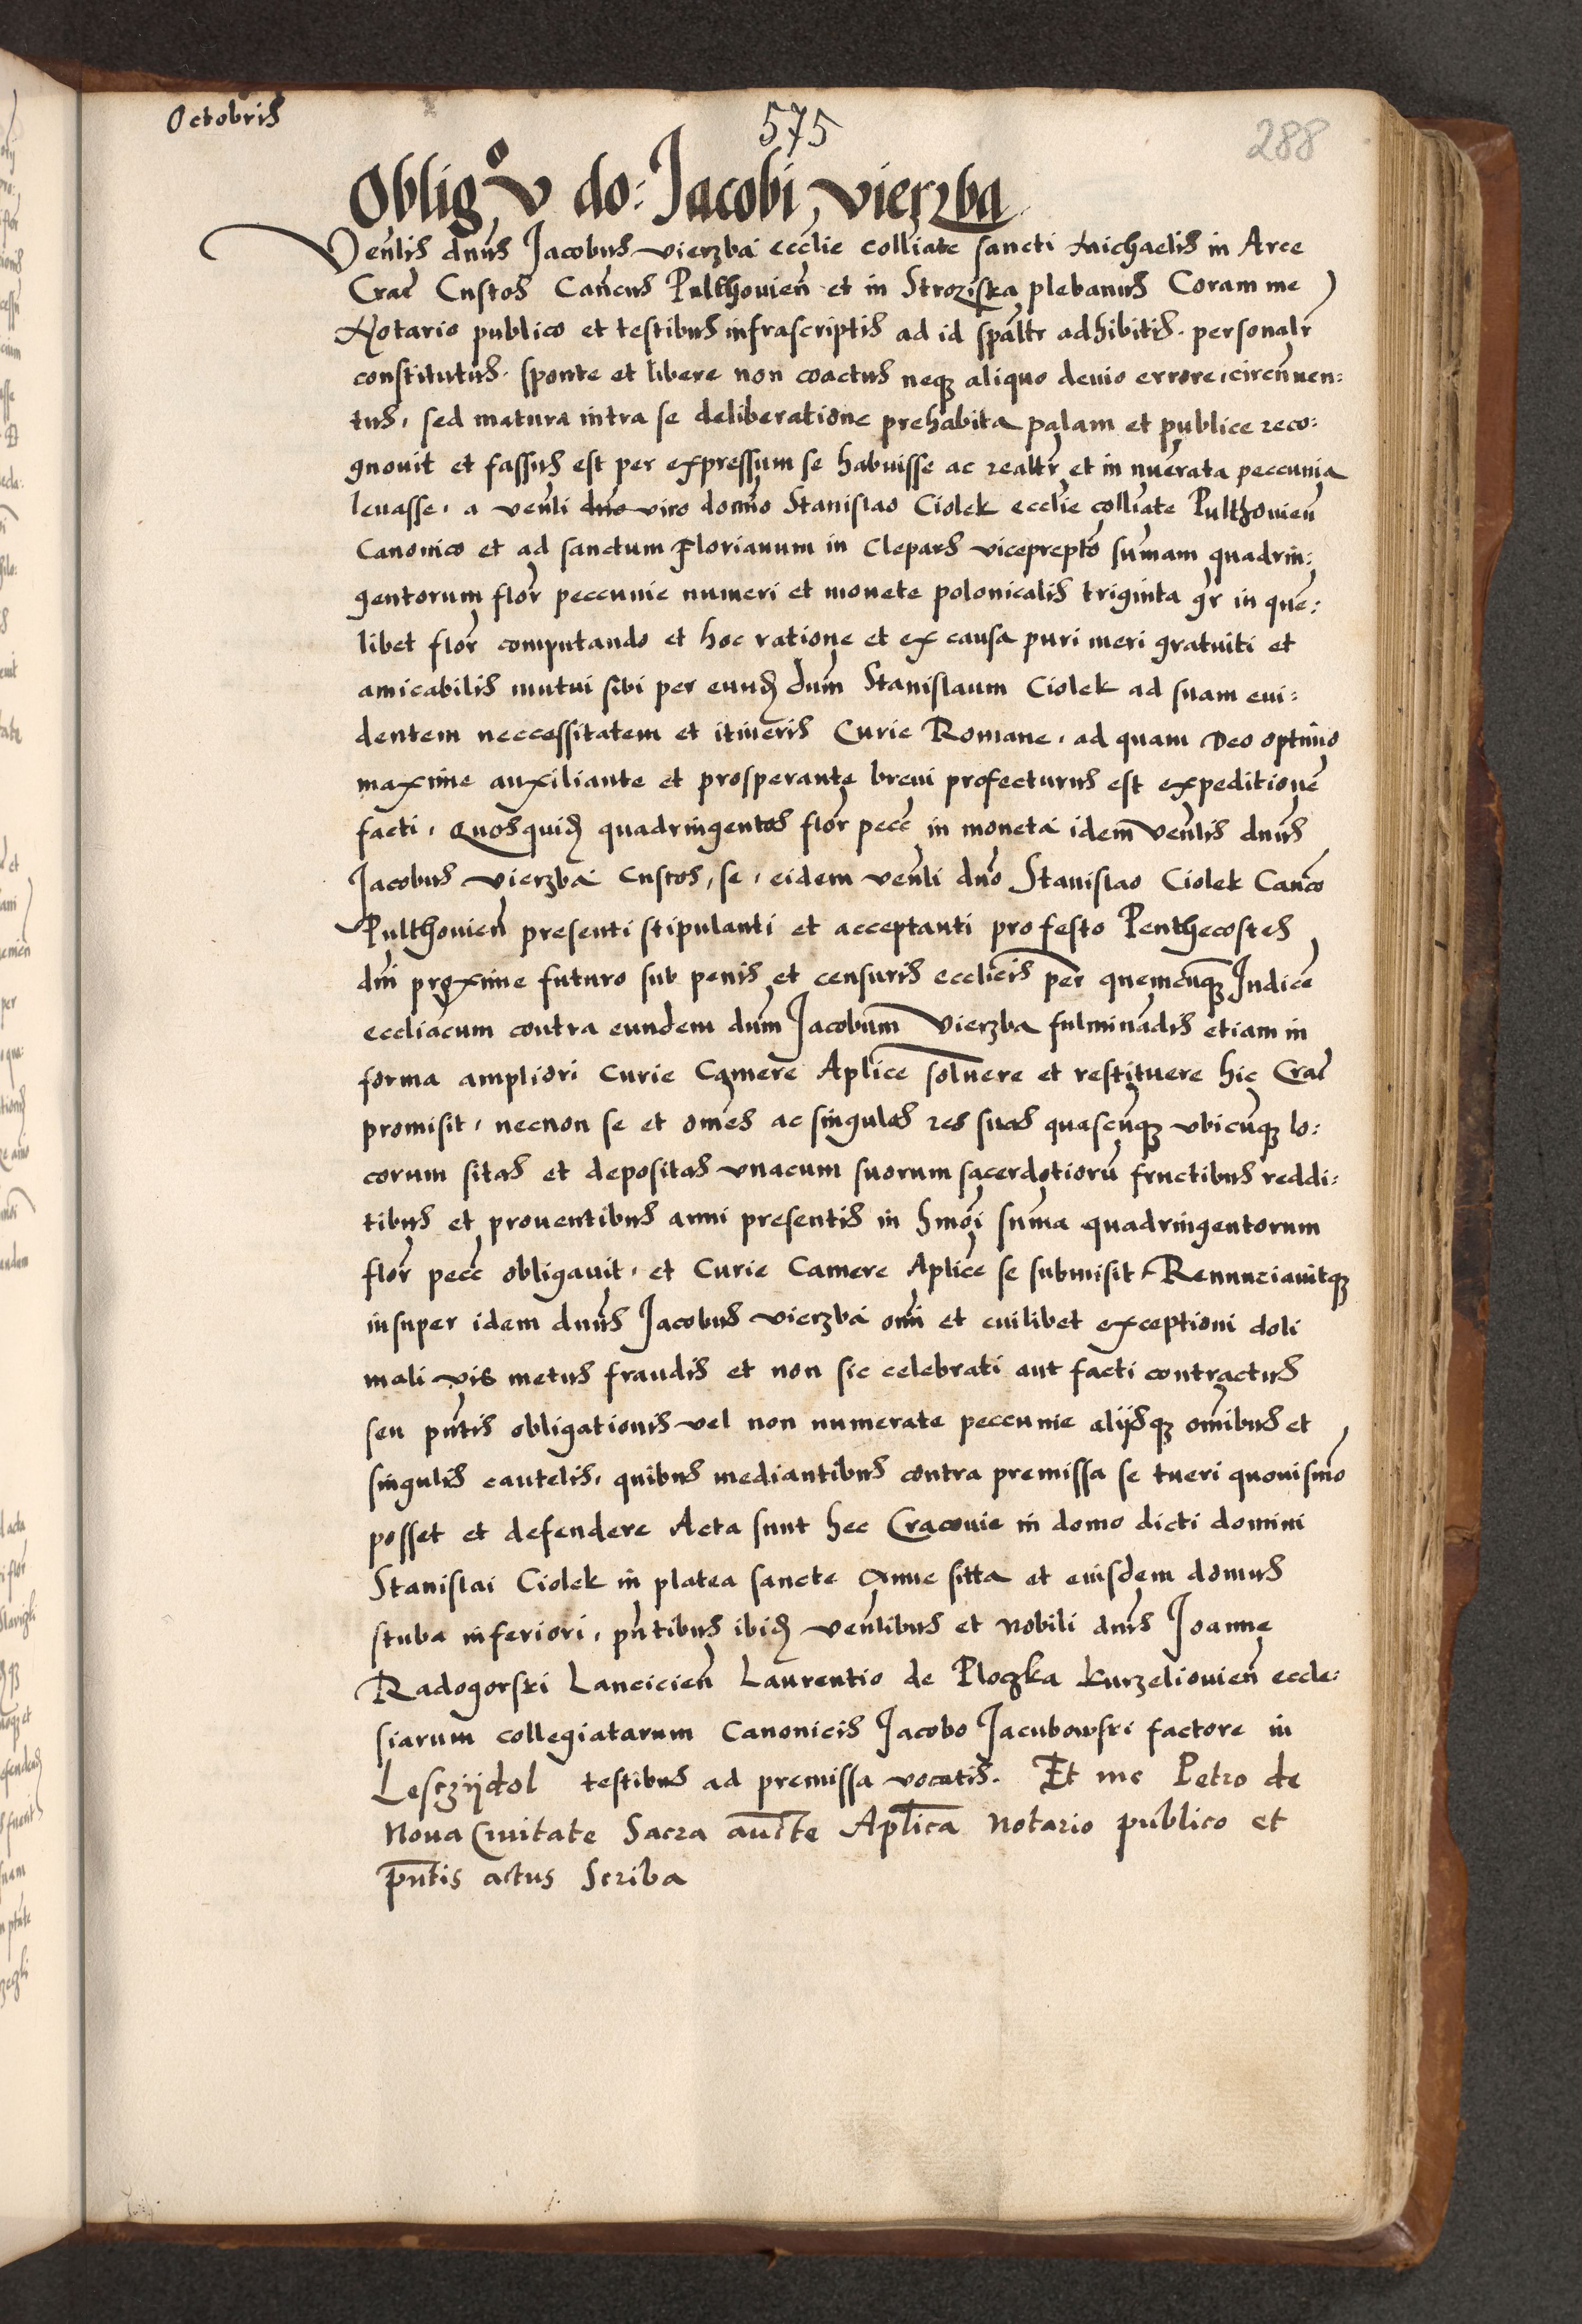 Octobris
575
288
Obligo v do: Jacobi Vierzba
Venlis dnus Jacobus vierzba ecclie colliate sancti Michaelis in Arce
Crac Custos Cancus Pulthovien et in Stroziska plebanus Coram me
Notario publico et testibus infrascriptis ad id spaltr adhibitis. personalr
constitutus. sponte et libere non coactus neqз aliquo devio errore, circuven:
tus, sed matura intra se deliberatione prehabita palam et publice reco:
gnouit et fassus est per expressum se habuisse ac realtr et in nuerata peccunia
levasse, a venli dno viro domno Stanislao Ciolek ecclie colliate Pulthouien
Canonico et ad sanctum Florianum in Clepars viceprepto sumam quadrin:
gentorum flor peccunie numeri et monete polonicalis triginta gr in que:
libet flor computando et hoc ratione et ex causa puri meri gratuiti et
amicabilis mutui sibi per eund dum Stanislaum Ciolek ad suam evi:
dentem neccessitatem et itineris Curie Romane, ad quam Deo optimo
maxime auxiliante et prosperante brevi profecturus est expeditione
facti, Quosquid quadringentos flor pecc in moneta idem venlis dnus
Jacobus vierzba Custos, se, eidem venli dno Stanislao Ciolek Canco
Pulthouien presenti stipulanti et acceptanti pro festo Penthecostes
dni proxime futuro sub penis et censuris ecclicis per quemcuqз Judice
eccliacum contra eundem dum Jacobum Vierzba fulminadis etiam in
forma ampliori Curie Camere Aplice soluere et restituere hic Crac
promisit, necnon se et omes ac singulas res suas quascuqз vbicuqз lo:
corum sitas et depositas vnacum suorum sacerdotioru fructibus reddi:
tibus et prouentibus anni presentis in hmoi suma quadringentorum
flor pecc obligauit, et Curie Camere Aplice se submisit, Renunciauitqз
insuper idem dnus Jacobus vierzba omi et cuilibet exceptioni doli
mali vis metus fraudis et non sic celebrati aut facti contractus
seu pntis obligationis vel non numerate peccunie alijsqз omibus et
singulis cautelis, quibus mediantibus contra premissa se tueri quouismo
posset et defendere Acta sunt hec Cracouie in domo dicti domini
Stanislai Ciolek in platea sancte Anne sitta et eiusdem domus
stuba inferiori, pntibus ibid venlibus et Nobili dnis Joanne
Radogorski Lancicien Laurentio de Ploczka Kurzeliouien eccle:
siarum collegiatarum Canonicis Jacobo Jacubowski factore in
Lesczijdol testibus ad premissa vocatis. Et me Petro de
Noua Ciuitate Sacra aucte Aplica Notario publico et
pntis actus Scriba